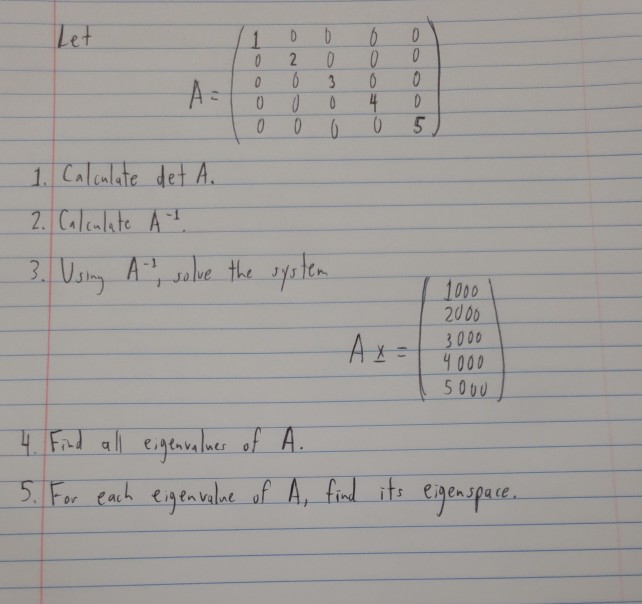 Let
A = ( 1 0 0 0 0
0 2 0 0 0
0 0 3 0 0
0 0 0 4 0
0 0 0 0 5 )
1. Calculate det A.
2. Calculate A⁻¹.
3. Using A⁻¹, solve the system
A x̲ = ( 1000
2000
3000
4000
5000 )
4. Find all eigenvalues of A.
5. For each eigenvalue of A, find its eigenspace.